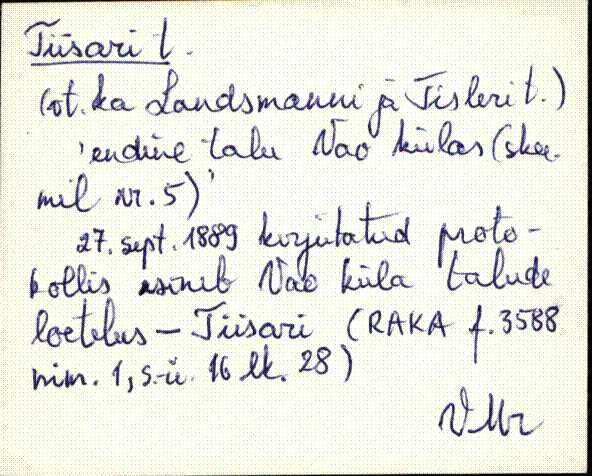 Tiisari t.
(vt. ka Landsmanni ja Tisleri t.)
'endine talu Vao külas (skee-
mil nr. 5)'
27. sept. 1889 kirjutatud proto-
kollis esineb Vao küla talude
loetelus – Tiisari (RAKA f. 3588
nim. 1, s.-ü. 16 lk. 28)